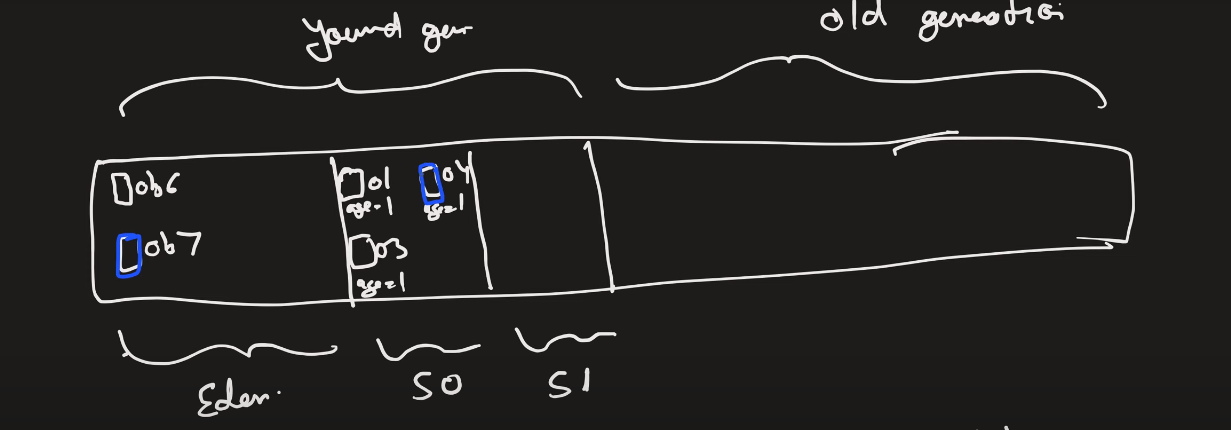 yound gen
old generation
ob6
o1
o4
age=1
age=1
ob7
o3
age=1
Eden
S0
S1